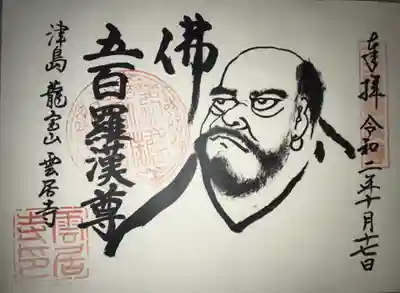 奉拝 令和二年十月十七日
佛
五百羅漢尊
津島 龍宝山 雲居寺
雲居
寺印